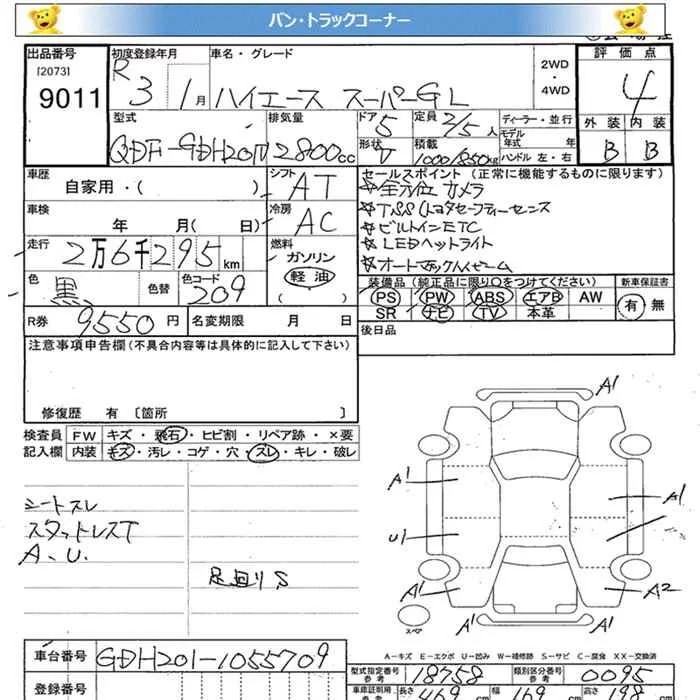 バン・トラックコーナー
出品番号 初度登録年月 車名・グレード 評価点
[2073] R 2WD
9011 3 1月 ハイエース スーパーGL ・ 4WD 4
型式 排気量 ドア 5 定員 2/5人 ディーラー・並行 外装 内装
モデル年式 年
QDF-GDH201V 2800cc 形状 V 積載 1000/850kg ハンドル 左・右 B B
車歴 シフト AT セールスポイント (正常に機能するものに限ります)
自家用・( ) ☆全方位カメラ
車検 冷房 AC ☆TSS(トヨタセーフティーセンス
年 月( 日) ☆ビルトインETC
走行 燃料 ☆LEDヘッドライト
2万6千295km ガソリン ☆オートマチックハイビーム
色 色替 色コード 軽油 装備品(純正品に限り○をつけてください) 新車保証書
黒 209 ( ) PS PW ABS エアB AW 有 無
SR ナビ TV 本革
R券 9550円 名変期限 月 日 後日品
注意事項申告欄(不具合内容等は具体的に記入して下さい)
修復歴 有 〔箇所 〕
検査員 FW キズ・飛石・ヒビ割・リペア跡・×要
記入欄 内装 キズ・汚レ・コゲ・穴・スレ・キレ・破レ
シートスレ
スタットレスT
A、U.
足回りS
A1
A1
A1
A1
U1
A1
A2
スペア
A-キズ E-エクボ U-凹み W-補修跡 S-サビ C-腐食 XX-交換済
車台番号 GDH201-1055709
型式指定番号 参考 18758 類別区分番号 参考 0095
登録番号 車庫証明用 参考 長さ 469cm 幅 169cm 高さ 198cm